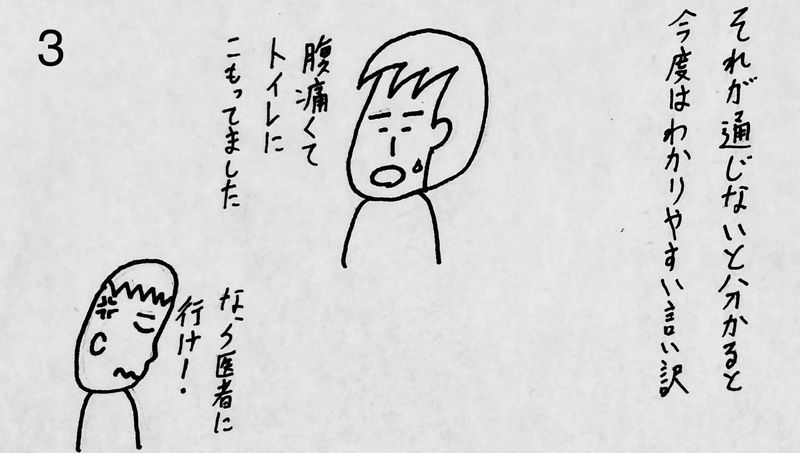 3
それが通じないと分かると
今度はわかりやすい言い訳
腹痛くて
トイレに
こもってました
なら医者に
行け!